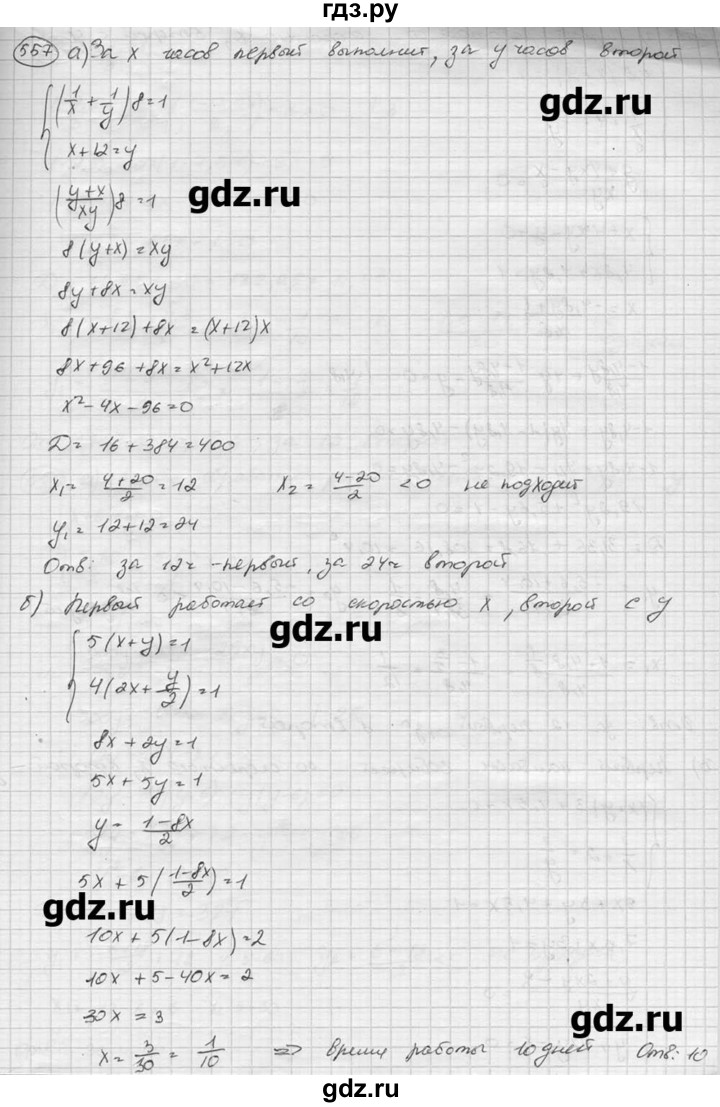 гдз.ру
557 а) За x часов первый выполнит, за y часов второй
{ (1/x + 1/y) 8 = 1
x + 12 = y
gdz.ru
((y+x)/xy) 8 = 1
gdz.ru
8(y+x) = xy
8y + 8x = xy
8(x+12) + 8x = (x+12)x
8x + 96 + 8x = x² + 12x
x² - 4x - 96 = 0
D = 16 + 384 = 400
x₁ = (4+20)/2 = 12 x₂ = (4-20)/2 < 0 не подходит
y₁ = 12 + 12 = 24
Отв: за 12ч - первый, за 24ч второй
б) Первый работает со скоростью x, второй с y
gdz.ru
{ 5(x+y) = 1
4(2x + y/2) = 1
8x + 2y = 1
5x + 5y = 1
y = (1-8x)/2
5x + 5((1-8x)/2) = 1
gdz.ru
10x + 5(1-8x) = 2
10x + 5 - 40x = 2
30x = 3
gdz.ru
x = 3/30 = 1/10 => время работы 10 дней Отв: 10
гдз.ру